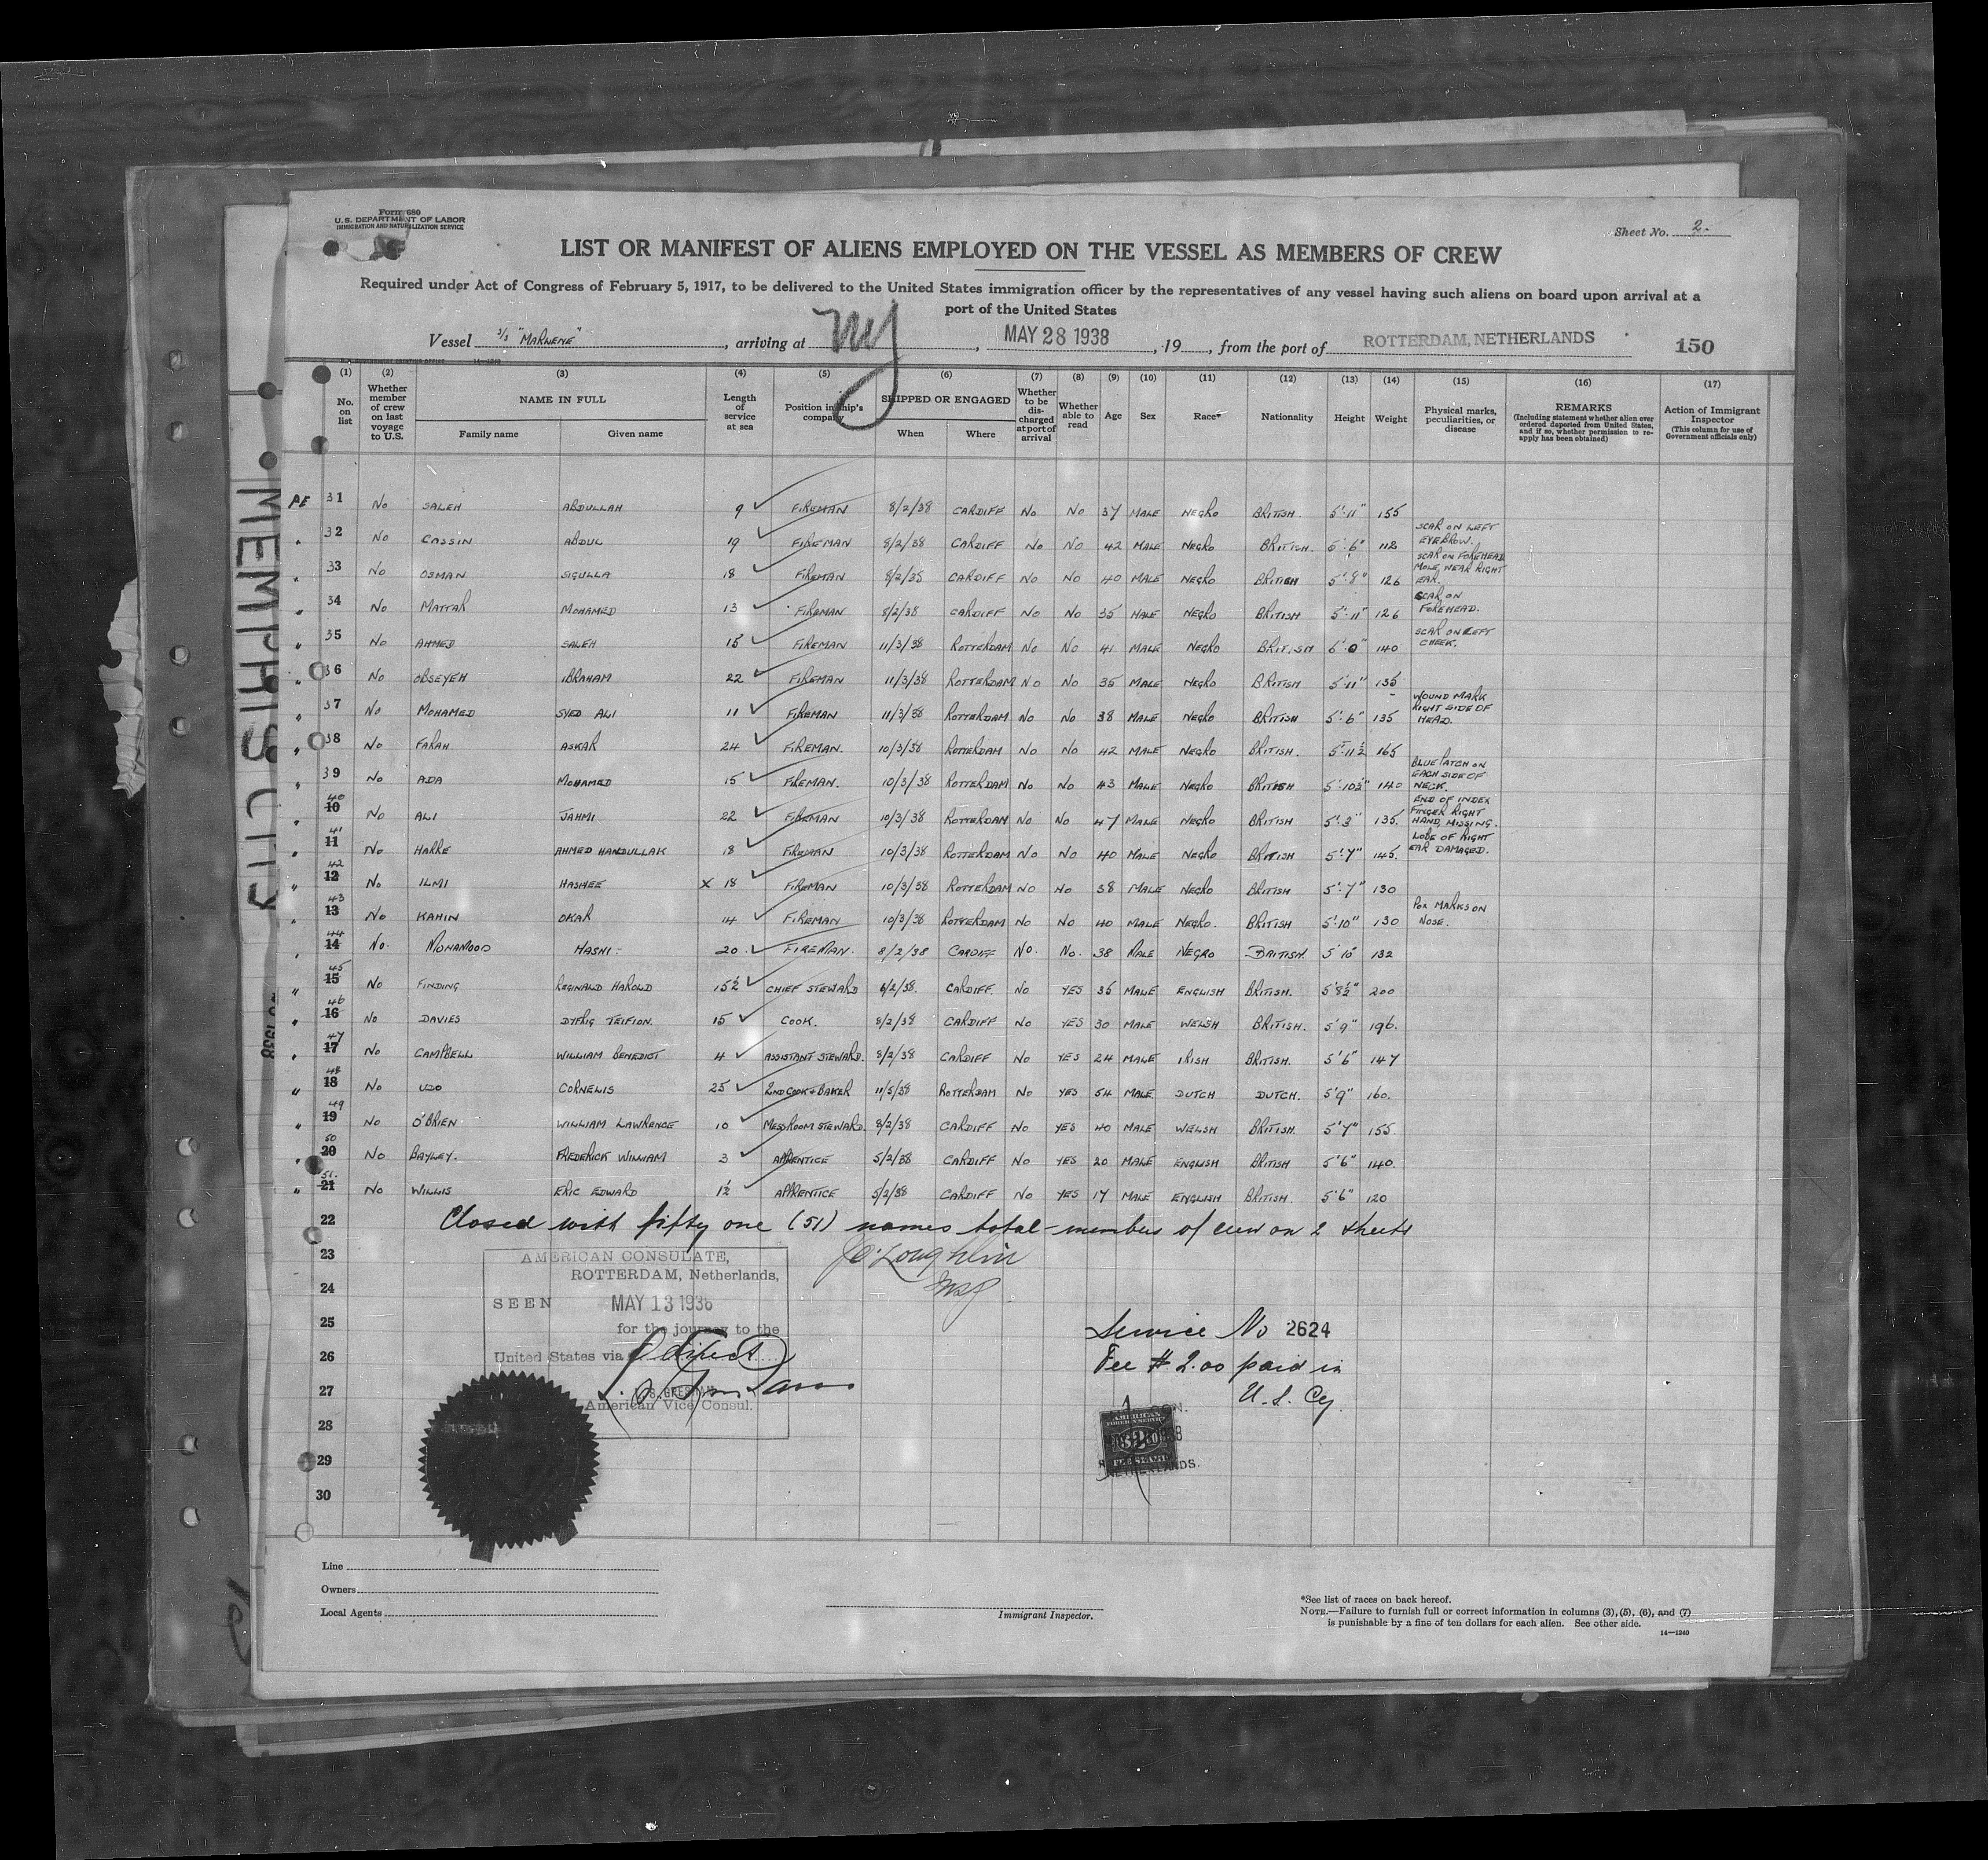 Form 680
U.S. DEPARTMENT OF LABOR
IMMIGRATION AND NATURALIZATION SERVICE
Sheet No. 2.
LIST OR MANIFEST OF ALIENS EMPLOYED ON THE VESSEL AS MEMBERS OF CREW
Required under Act of Congress of February 5, 1917, to be delivered to the United States immigration officer by the representatives of any vessel having such aliens on board upon arrival at a
port of the United States
Vessel S/S "MARWENE", arriving at NY, MAY 28 1938, 19, from the port of ROTTERDAM, NETHERLANDS 150
(1) (2) (3) (4) (5) (6) (7) (8) (9) (10) (11) (12) (13) (14) (15) (16) (17)
No. on list Whether member of crew on last voyage to U.S. NAME IN FULL Family name Given name Length of service at sea Position in ship's company SHIPPED OR ENGAGED When Where Whether to be discharged at port of arrival Whether able to read Age Sex Race* Nationality Height Weight Physical marks, peculiarities, or disease REMARKS (Including statement whether alien ever ordered deported from United States, and if so, whether permission to reapply has been obtained) Action of Immigrant Inspector (This column for use of Government officials only)
PE 31 No SALEH ABDULLAH 9 FIREMAN 8/2/38 CARDIFF No No 37 MALE NEGRO BRITISH. 5'.11" 155
32 No CASSIN ABDUL 19 FIREMAN 8/2/38 CARDIFF No No 42 MALE NEGRO BRITISH. 5'.6" 112 SCAR ON LEFT EYEBROW.
33 No OSMAN SIGULLA 18 FIREMAN 8/2/38 CARDIFF No No 40 MALE NEGRO BRITISH 5'.8" 126 SCAR ON FOREHEAD MOLE NEAR RIGHT EAR.
34 No MATTAR MOHAMED 13 FIREMAN 8/2/38 CARDIFF No No 35 MALE NEGRO BRITISH 5'.11" 126 SCAR ON FOREHEAD.
35 No AHMED SALEH 15 FIREMAN 11/3/38 ROTTERDAM No No 41 MALE NEGRO BRITISH 6'.0" 140 SCAR ON LEFT CHEEK.
36 No OBSEYEH IBRAHAM 22 FIREMAN 11/3/38 ROTTERDAM No No 35 MALE NEGRO BRITISH 5'.11" 135
37 No MOHAMED SYED ALI 11 FIREMAN 11/3/38 ROTTERDAM No No 38 MALE NEGRO BRITISH 5'.6" 135 WOUND MARK RIGHT SIDE OF HEAD.
38 No FARAH ASKAR 24 FIREMAN. 10/3/38 ROTTERDAM No No 42 MALE NEGRO BRITISH. 5'.11½ 165
39 No ADA MOHAMED 15 FIREMAN. 10/3/38 ROTTERDAM No No 43 MALE NEGRO BRITISH 5'.10½" 140 BLUE PATCH ON EACH SIDE OF NECK.
40 10 No ALI JAHMI 22 FIREMAN 10/3/38 ROTTERDAM No No 47 MALE NEGRO BRITISH 5'.3" 135. END OF INDEX FINGER RIGHT HAND, MISSING.
41 11 No HARRE AHMED HANDULLAK 18 FIREMAN 10/3/38 ROTTERDAM No No 40 MALE NEGRO BRITISH 5'.7" 145. LOBE OF RIGHT EAR DAMAGED.
42 12 No ILMI HASHEE X 18 FIREMAN 10/3/38 ROTTERDAM No No 38 MALE NEGRO BRITISH 5'.7" 130
43 13 No KAHIN OKAR 14 FIREMAN 10/3/38 ROTTERDAM No No 40 MALE NEGRO. BRITISH 5'10" 130 POX MARKS ON NOSE.
44 14 No. MOHAMOOD HASHI 20 FIREMAN. 8/2/38 CARDIFF No. No. 38 MALE NEGRO BRITISH. 5'10" 132
45 15 No FINDING REGINALD HAROLD 15½ CHIEF STEWARD 6/2/38. CARDIFF. No YES 35 MALE ENGLISH BRITISH. 5'8½" 200
46 16 No DAVIES DYFRIG TEIFION. 15 COOK. 8/2/38 CARDIFF No YES 30 MALE WELSH BRITISH. 5'9" 196.
47 17 No CAMPBELL WILLIAM BENEDICT 4 ASSISTANT STEWARD. 8/2/38 CARDIFF No YES 24 MALE IRISH BRITISH. 5'6" 147
48 18 No UDO CORNELIS 25 2ND COOK & BAKER 11/5/38 ROTTERDAM No YES 54 MALE DUTCH DUTCH. 5'9" 160.
49 19 No O'BRIEN WILLIAM LAWRENCE 10 MESSROOM STEWARD. 8/2/38 CARDIFF No YES 40 MALE WELSH BRITISH. 5'7" 155.
50 20 No BAYLEY. FREDERICK WILLIAM 3 APPRENTICE 5/2/38 CARDIFF No YES 20 MALE ENGLISH BRITISH 5'6" 140.
51. 21 No WILLIS ERIC EDWARD 1½ APPRENTICE 5/2/38 CARDIFF No YES 17 MALE ENGLISH BRITISH. 5'6" 120
22 Closed with fifty one (51) names total number of crew on 2 sheets
23 O'Loughlin
24
25
26
27
28
29
30
AMERICAN CONSULATE,
ROTTERDAM, Netherlands,
SEEN MAY 13 1938
for the journey to the
United States via direct
American Vice Consul.
Service No 2624
Fee $ 2.00 paid in
U.S. Cy.
AMERICAN
FOREIGN SERVICE
NETHERLANDS.
MEMPHIS CITY
Line
Owners
Local Agents
Immigrant Inspector.
*See list of races on back hereof.
NOTE.—Failure to furnish full or correct information in columns (3), (5), (6), and (7)
is punishable by a fine of ten dollars for each alien. See other side.
14—1240